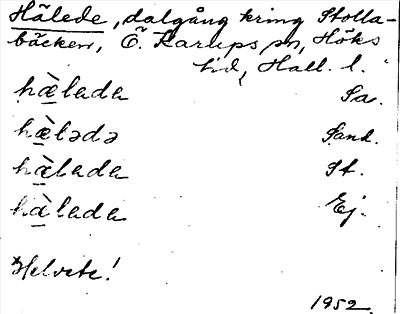 Hälede, dalgång kring Stolla-
bäcken, Ö. Karups sn, Höks
hd, Hall. l.
hæ̀lada Sa.
hæ̀lədə Sand.
hàlada St.
hàlada Ej.
*Helvete!
1952.